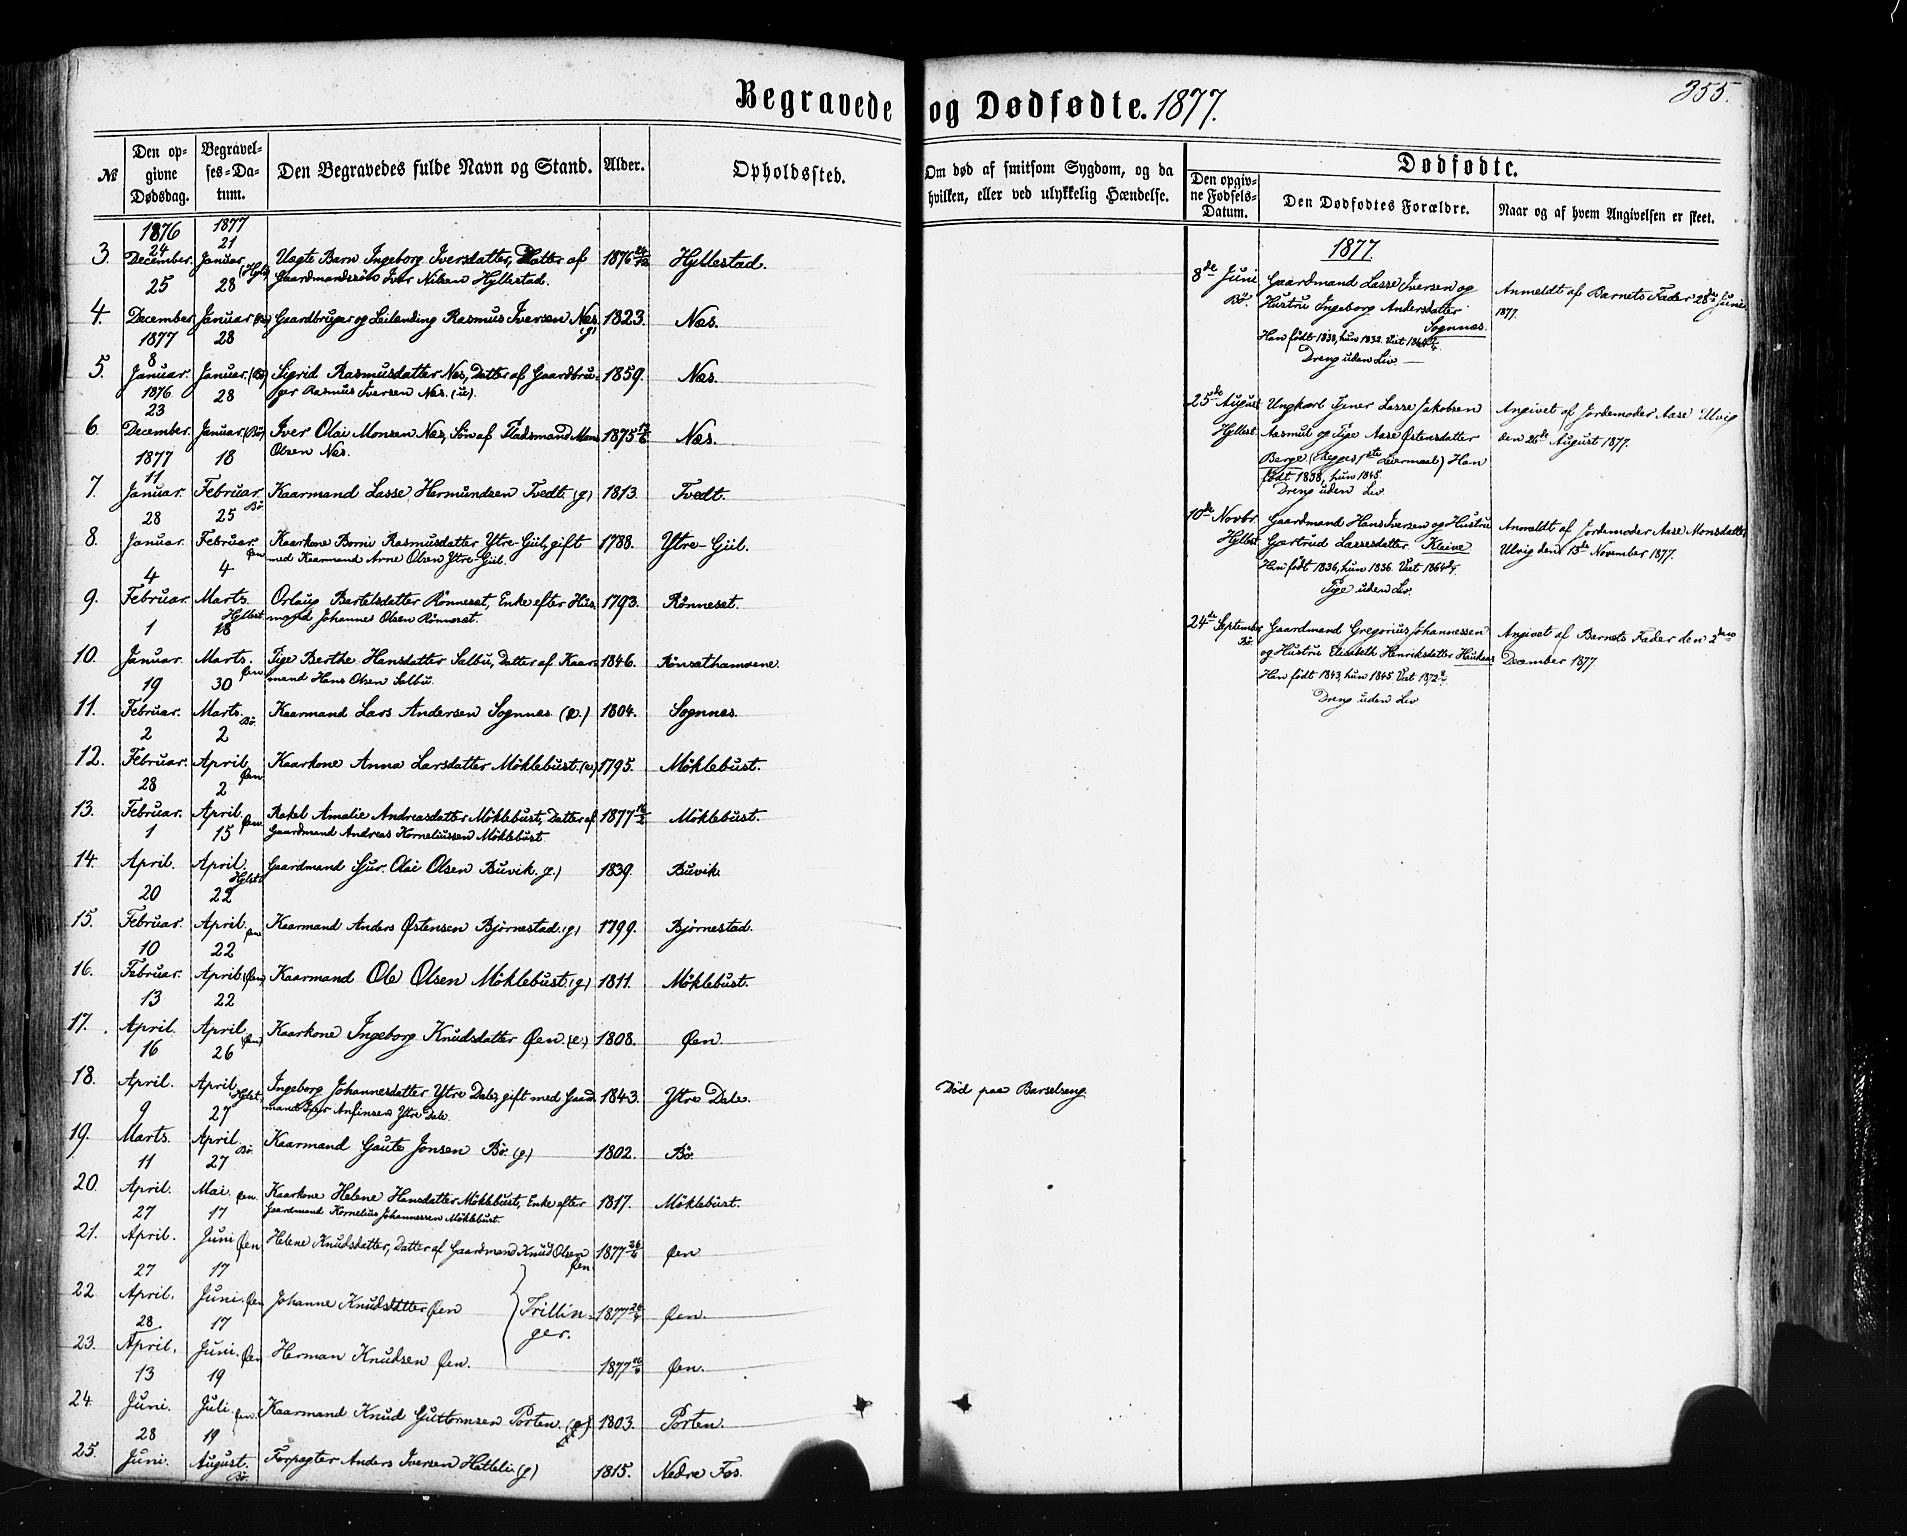 Begravede og Dødfødte. 1877.
355.
№
Den opgivne Dødsdag.
Begravelses-Datum.
Den Begravedes fulde Navn og Stand.
Alder.
Opholdssted.
Om død af smitsom Sygdom, og da hvilken, eller ved ulykkelig Hændelse.
Dødfødte.
Den opgivne Fødsels-Datum.
Den Dødfødtes Forældre.
Naar og af hvem Angivelsen er skeet.
1876 1877
24 21
3. December. Januar (Hyl) Uøgte Barn Ingeborg Iversdatter, Datter af 1876 24/12 Hyllestad.
Gaardmandssøn Iver Nilsen Hyllestad.
25 28
4. December Januar (Bø) Gaardbruger og Leilending Rasmus Iversen Næs. (g) 1823. Næs.
1877 28
8
5. Januar. Januar. (Bø) Sigrid Rasmusdatter Næs, Datter af Gaardbru- 1859. Næs.
ger Rasmus Iversen Næs. (u).
1876 28
23
6. December. Januar. (Bø) Iver Olai Monsen Næs, Søn af Pladsmand Mons 1875 Næs.
Olsen Næs.
1877 18
11
7. Januar. Februar. Bø. Kaarmand Lasse Hermundsen Tvedt. (g) 1813. Tvedt.
28 25
8. Januar. Februar. Øen Kaarkone Berni Rasmusdatter Ytre-Gül, gift 1788. Ytre-Gül.
med Kaarmand Arne Olsen Ytre-Gül.
4 4
9. Februar. Marts. Hyllest. Orlaug Bertelsdatter Rönneset, Enke efter Hus- 1793. Rönneset.
mand Johannes Olsen Rönneset.
1 18
10. Januar Marts. Øen Pige Berthe Hansdatter Salbu, Datter af Kaar- 1846. Rönsethamnene.
mand Hans Olsen Salbu.
19 30
11. Februar. Marts. Bø. Kaarmand Lars Andersen Sognnæs. (e.) 1804. Sognnæs.
2 2
12. Februar. April. Øen Kaarkone Anna Larsdatter Möklebust. (e) 1795. Möklebust.
28 2
13. Februar. April. Øen. Rakel Amalie Andreasdatter Möklebust, Datter af 1877 Möklebust.
Gaardmand Andreas Korneliussen Möklebust.
1 15
14. April. April. Hylest. Gaardmand Sjur Olai Olsen Buvik. g.) 1839. Buvik.
20 22
15. Februar April. Øen Kaarmand Anders Østensen Bjørnestad. (g) 1799. Bjørnestad.
10 22
16. Februar. April. (Øen) Kaarmand Ole Olsen Möklebust. (g) 1811. Möklebust.
13 22
17. April. April (Øen) Kaarkone Ingeborg Knudsdatter Øen. (e.) 1808. Øen.
16 26
18. April. April Hylest. Ingeborg Johannesdatter Ytre Dale, gift med Gaard- 1843. Ytre Dale. Død paa Barselseng.
mand Iver Anfinsen Ytre Dale.
9 27
19. Marts. April. Bø. Kaarmand Gaute Jonsen Bø. (g) 1802. Bø.
11 27
20. April. Mai. Øen. Kaarkone Helene Hansdatter Möklebust, Enke efter 1817. Möklebust.
Gaardmand Kornelius Johannessen Möklebust.
27 17
21. April. Juni Øen Helene Knudsdatter, Datter af Gaardmand Knud Olsen Øen. 1877 26/4 Øen
27 17
22. April. Juni. Øen Johanne Knudsdatter Øen 1877 26/4 Øen.
Trillinger.
28. 17
23. April. Juni. Øen Herman Knudsen Øen. 1877 26/4 Øen.
13 19
24. Juni. Juli. Øen. Kaarmand Knud Guttormsen Porten. (g) 1803. Porten.
28 19
25. Juni. August. Bø. Forpagter Anders Iversen Hatteli (g) 1815. Nedre Fos.
1877.
8de Juni Bø. Gaardmand Lasse Iversen og
Hustru Ingeborg Andersdatter
Sognnæs.
Han født 1838, hun 1832. Viet 1864
Dreng uden Liv
Anmeldt af Barnets Fader 28de Juni
1877.
25de August Hyllest. Ungkarl Tjener Lasse Jakobsen
Aasmul og Pige Aase Østensdatter
Berge (Begges 1ste Leiermaal) Han
født 1838, hun 1845.
Dreng uden Liv
Angivet af Jordemoder Aase Ulvig
den 26de August 1877.
10de Novbr. Hyllest Gaardmand Hans Iversen og Hustru
Gjertrud Lassesdatter Kleive
Han født 1836, hun 1836. Viet 1864
Pige uden Liv.
Anmeldt af Jordemoder Aase Monsdatter
Ulvig den 13de November 1877.
24de September Bø. Gaardmand Gregorius Johannessen
og Hustru Elisabeth Henriksdatter
Han født 1843, hun 1845 Viet 1872
Dreng uden Liv
Angivet af Barnets Fader den 2den
December 1877.